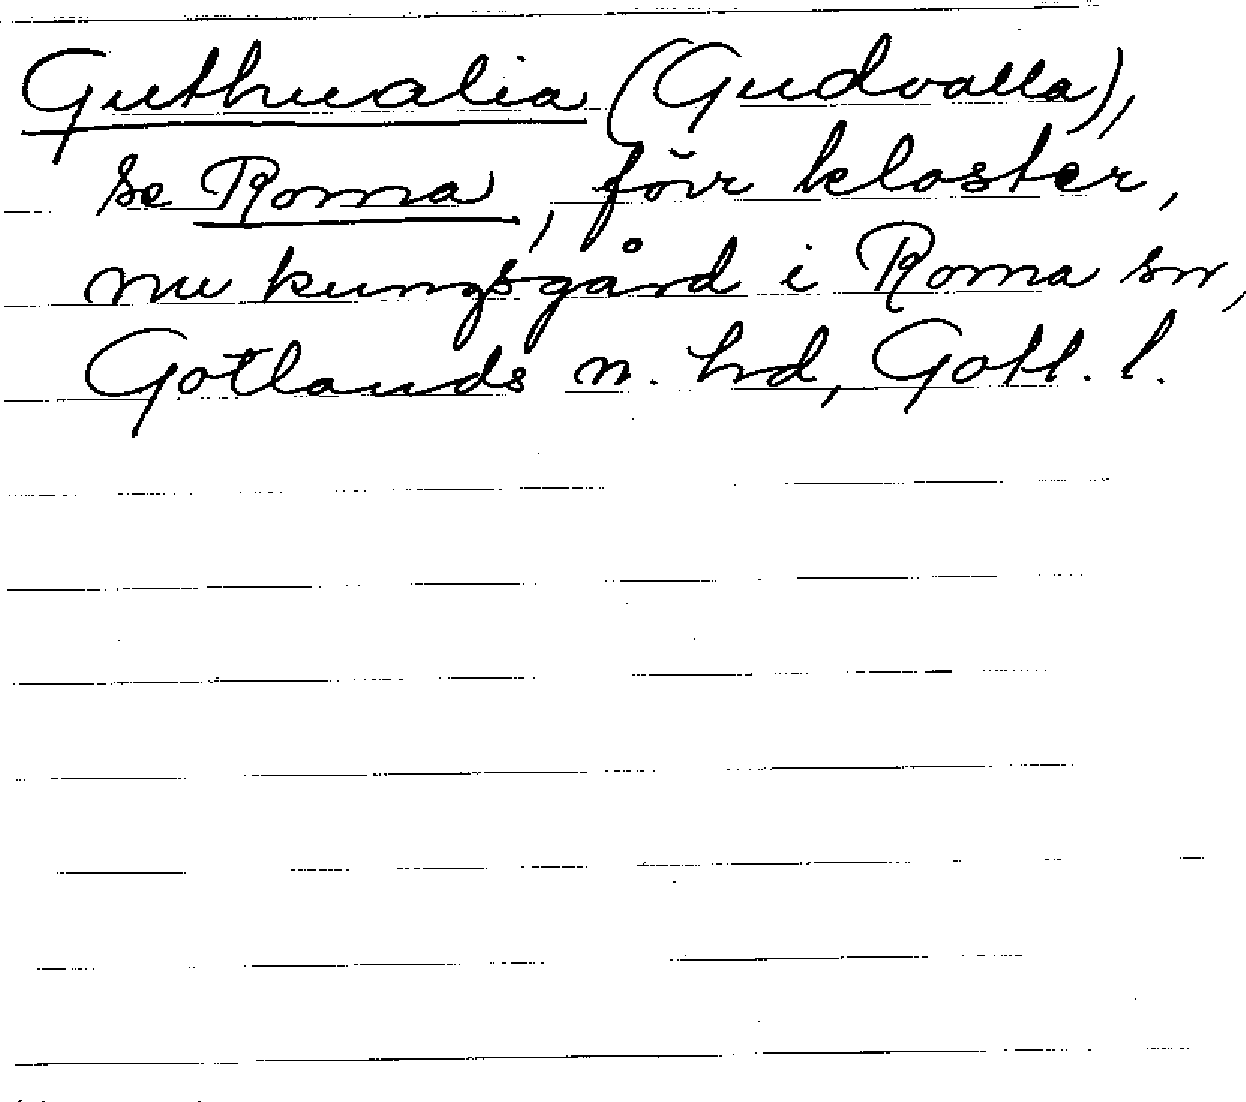 Guthualia (Gudvalla),
se Roma, förr kloster,
nu kungsgård i Roma sn,
Gotlands n. hd, Gotl. l.